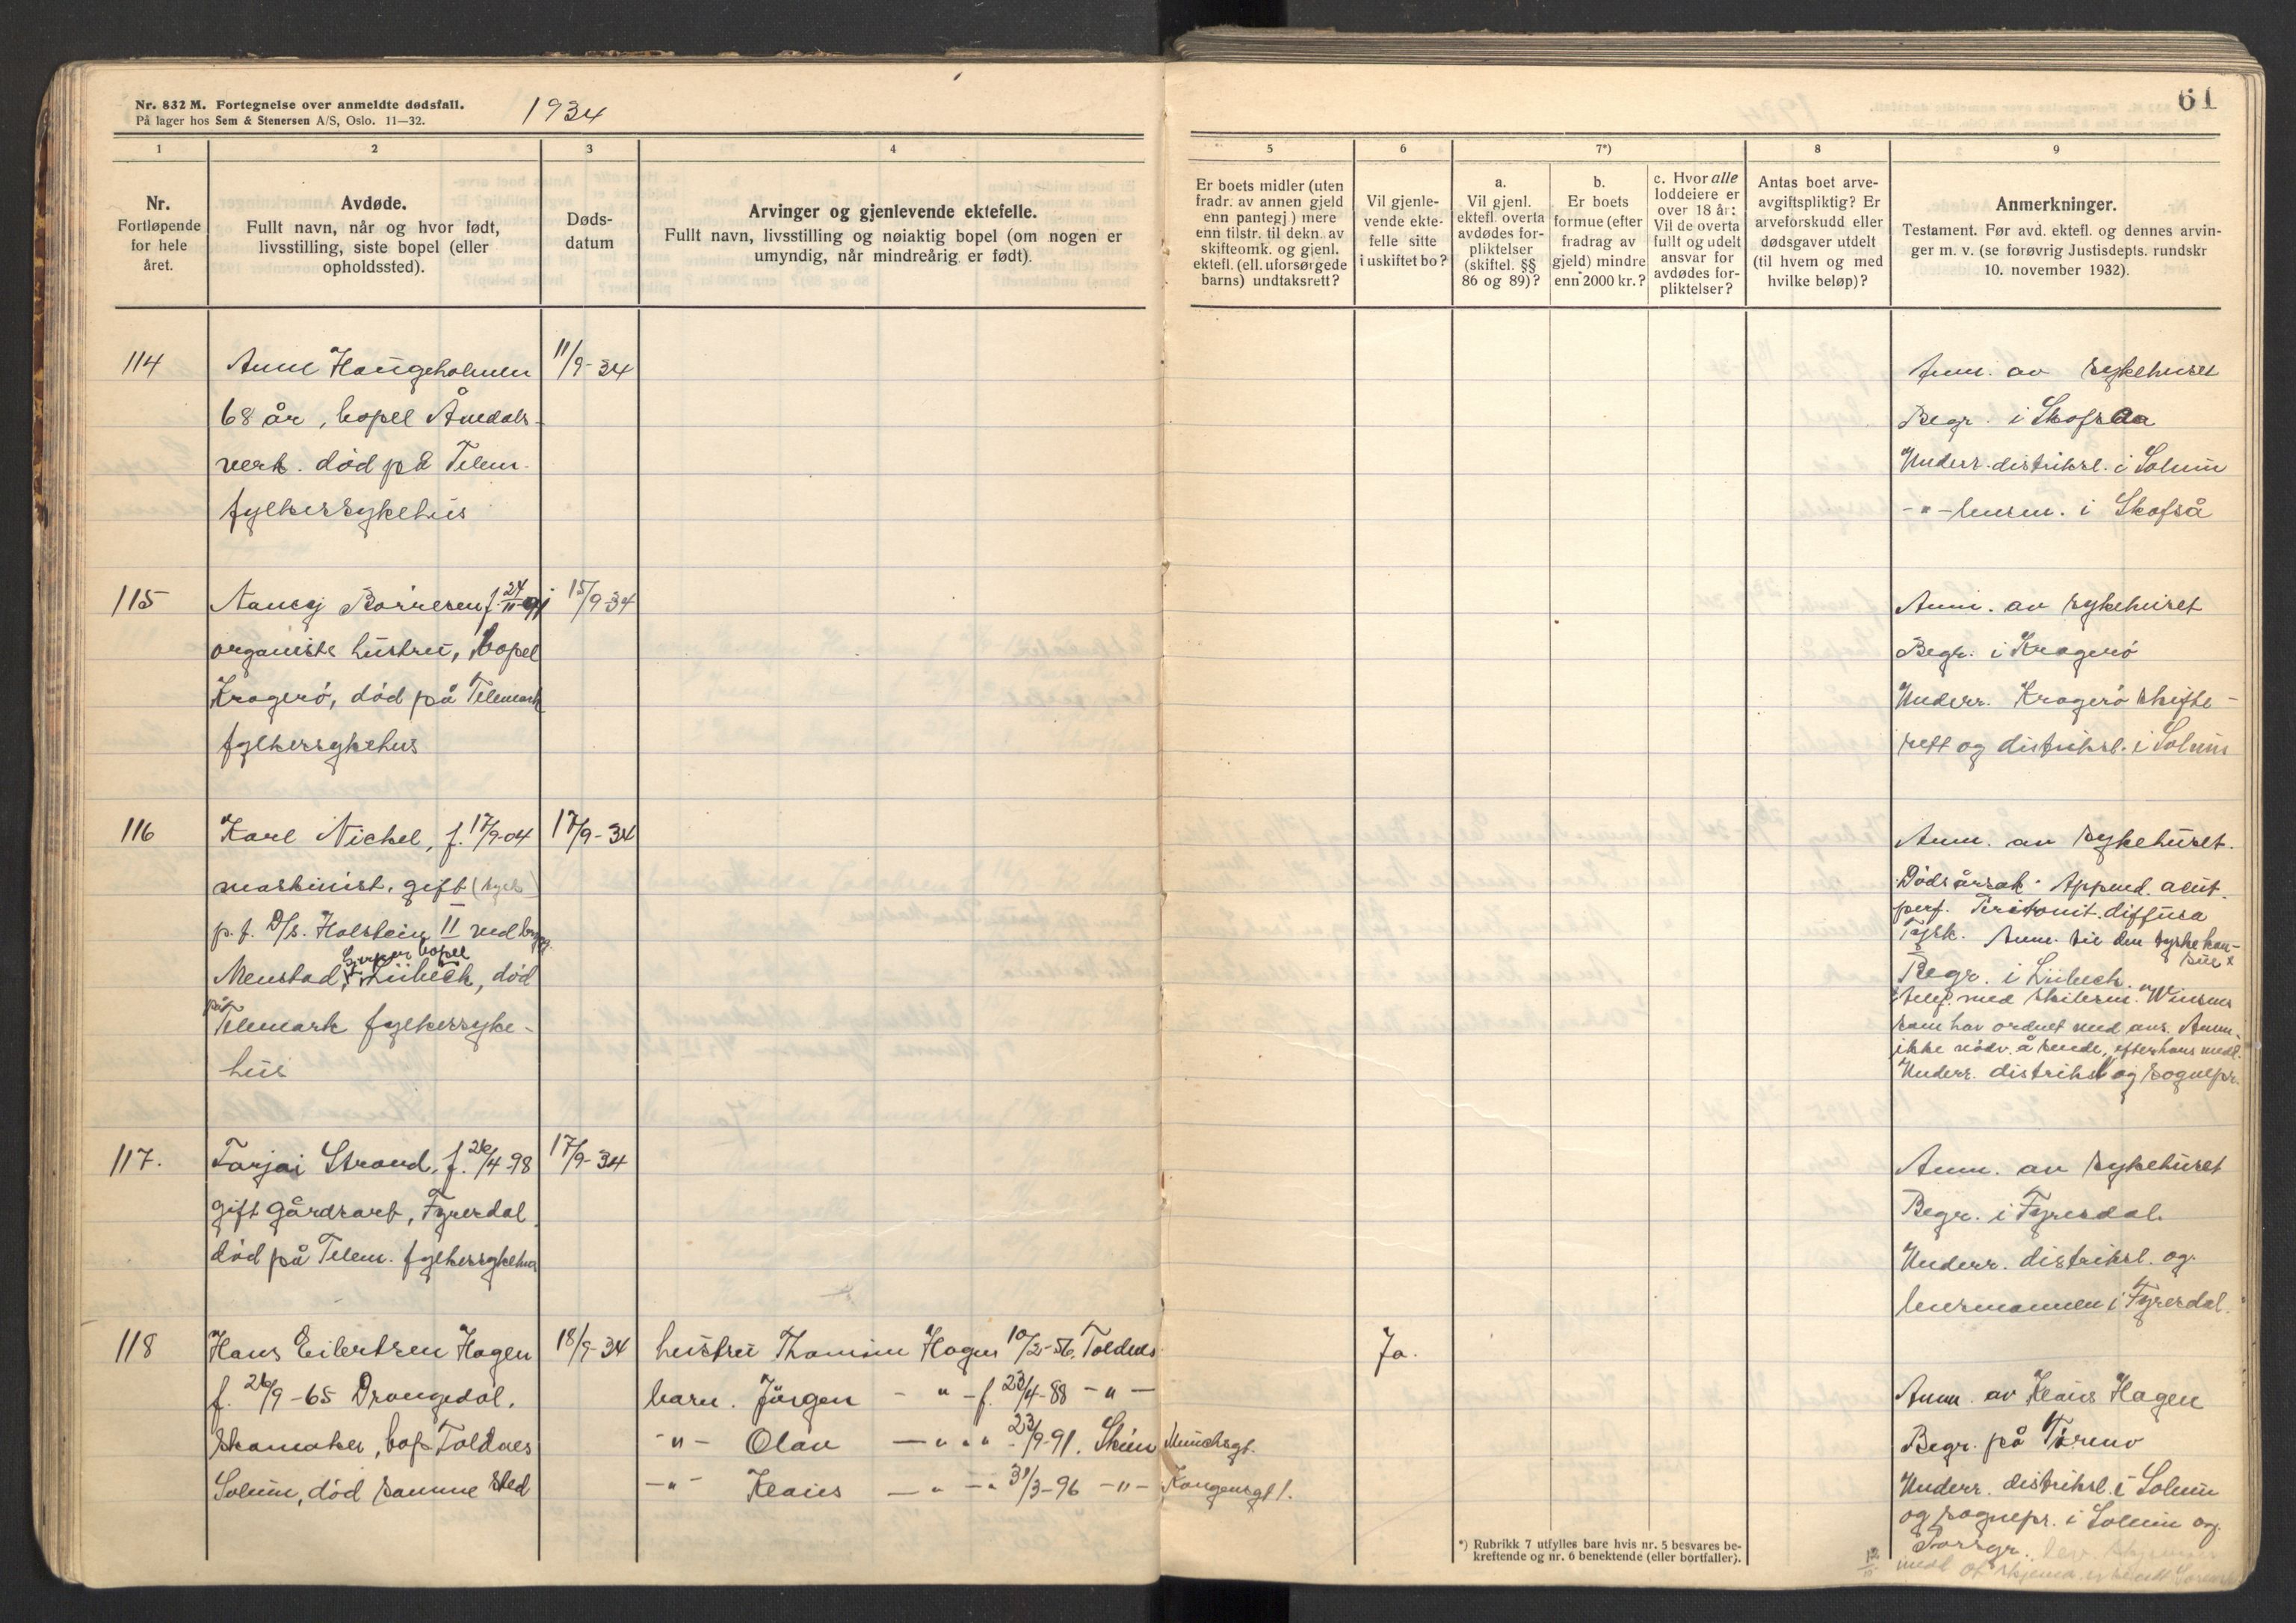 Nr. 832 M. Fortegnelse over anmeldte dødsfall.
På lager hos Sem & Stenersen A/S, Oslo. 11—32.
1934
61
1
2
3
4
5
6
7*)
8
9
Nr.
Fortløpende
for hele
året.
Avdøde.
Fullt navn, når og hvor født,
livsstilling, siste bopel (eller
opholdssted).
Døds-
datum
Arvinger og gjenlevende ektefelle.
Fullt navn, livsstilling og nøiaktig bopel (om nogen er
umyndig, når mindreårig er født).
Er boets midler (uten
fradr. av annen gjeld
enn pantegj.) mere
enn tilstr. til dekn. av
skifteomk. og gjenl.
ektefl. (ell. uforsørgede
barns) undtaksrett?
Vil gjenle-
vende ekte-
felle sitte
i uskiftet bo?
a.
Vil gjenl.
ektefl. overta
avdødes for-
pliktelser
(skiftel. §§
86 og 89)?
b.
Er boets
formue (efter
fradrag av
gjeld) mindre
enn 2000 kr.?
c. Hvor alle
loddeiere er
over 18 år:
Vil de overta
fullt og udelt
ansvar for
avdødes for-
pliktelser?
Antas boet arve-
avgiftspliktig? Er
arveforskudd eller
dødsgaver utdelt
(til hvem og med
hvilke beløp)?
Anmerkninger.
Testament. Før avd. ektefl. og dennes arvin-
ger m. v. (se forøvrig Justisdepts. rundskr
10. november 1932).
114
Anne Haugeholmen
68 år, bopel Åmdals-
verk. død på Telem.
fylkessykehus
11/9-34
Anm. av sykehuset
Begr. i Skofsaa
Underr. distriksl. i Solum
-"- lensm. i Skofså
115
Nancy Borresen f. 24/11-91
organists hustru, bopel
Kragerö, död på Telemark
fylkessykehus
15/9-34
Anm. av sykehuset
Begr. i Kragerö
Underr. Kragerö skifte-
rett og distriksl. i Solum
116
Karl Nickel, f. 17/9-04
maskinist, gift
p.t. D/s. Holstein II ved brygg
Menstad, bopel
Lübeck, död
på
Telemark fylkessyke-
hus
17/9-34
Anm. av sykehuset.
Dödsårsak: Append. acut.
perf. Peritonit. diffusa
Tysk. Anm. til den tyske kon-
sul
Begr. i Lübeck.
telef. med
som har ordnet med ans. Anm.
ikke nödv. å sende, efter hans medl.
Underr. distriksl og sognepr.
117.
Tarjei Strand, f. 26/4-98
gift gårdsarb, Fyresdal
död på Telem. fylkessykehus
17/9-34
Anm. av sykehuset
Begr. i Fyresdal.
Underr. distriksl. og
lensmannen i Fyresdal.
118
Hans Eilertsen Hagen
f. 26/9-65 Drangedal.
Skomaker, bop. Toldnes
Solum, död samme sted
18/9-34
hustru Thomine Hagen 10/2-56. Toldnes
barn. Jörgen -"- f. 23/4-88 -"-
-"- Olav -"- " 23/9-91. Skien Munchsgt.
-"- Klaus -"- " 31/3-96 -"- Kongensgt 1.
Ja.
Anm. av Klaus Hagen
Begr. på
Underr. distriksl. i Solum
og sognepr. i Solum og
Porsgr.
*) Rubrikk 7 utfylles bare hvis nr. 5 besvares be-
kreftende og nr. 6 benektende (eller bortfaller).